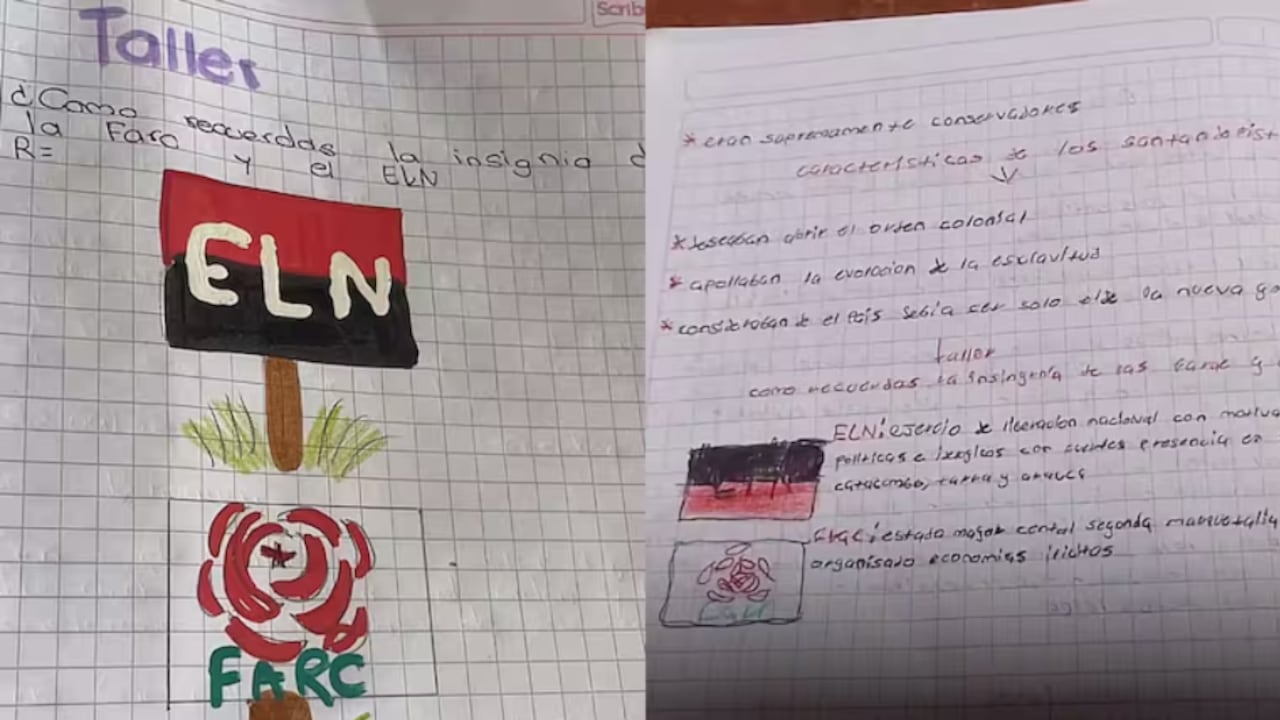 Scrib
Taller
¿Como recuerdas la insignia d
la Farc y el ELN
R=
ELN
FARC
*eran supremamente conservadores
características de los santanderist
*deseaban abrir el orden colonial
* apollaban la evolocion de la esclavitud
*consideraban de el pais debia cer solo de la nueva
taller
como recuerdas la insingnia de las farc y
ELN: ejercio de liberacion nacional con
politicas e con presencia en
catatumbo, y arauca
estado mayor central segonda
organisado economias ilicitos